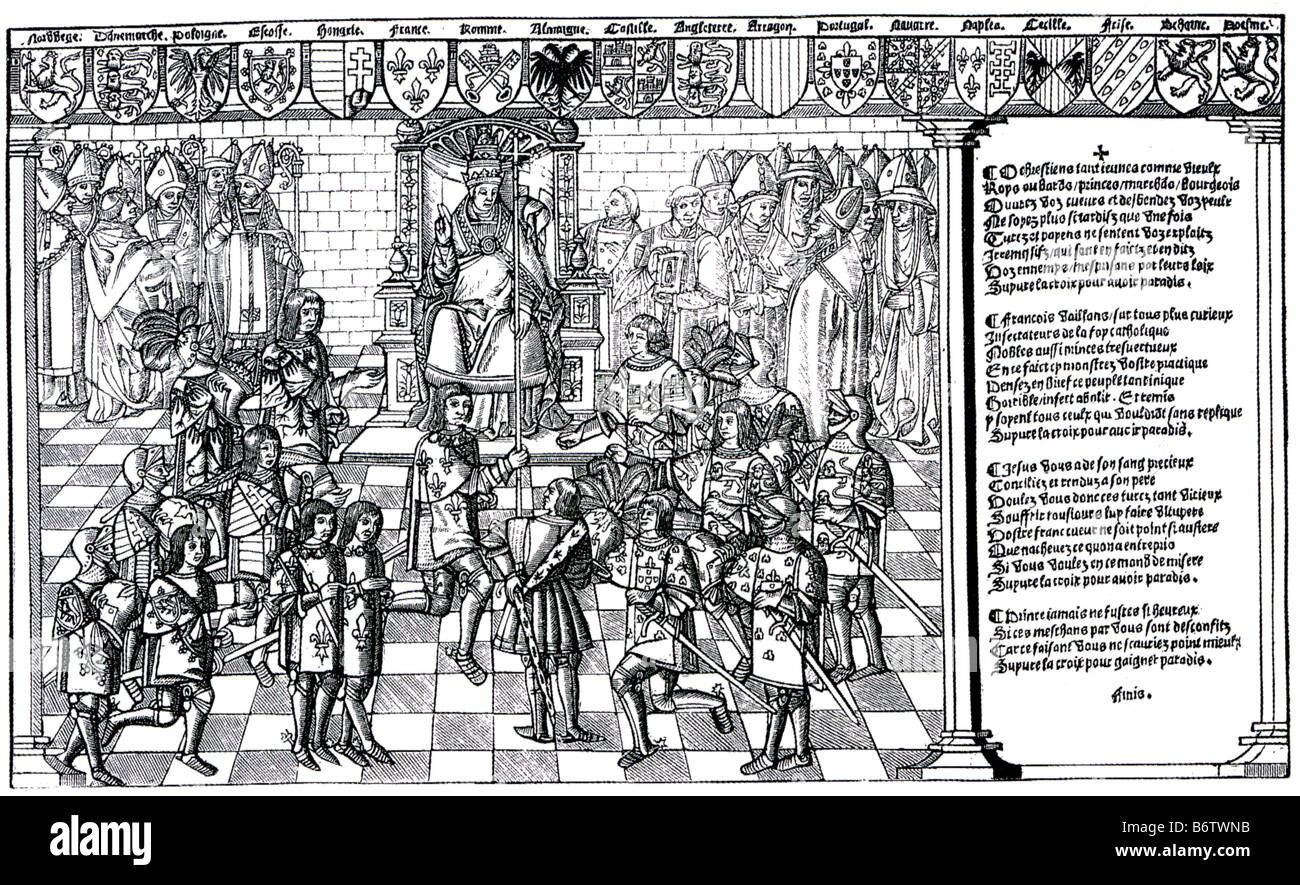 Nordvege. Dānemarche. Poloigne. Escosse. Hongrie. France. Romme. Almaigne. Castille. Angleterre. Arragon. Portugal. Navarre. Naples. Cecille. Frise. Behaine. Boesme.
O Chrestiens tant ieunes comme vieulx
Roys ou barōs / princes / marchās / bourgeois
Ouvrez voz cueurs et desbendez voz yeulx
Ne soyez plus si tardifz que une fois
Turcz et payens ne sentent voz exploitz
qui sont en faictz et en ditz
Voz ennemys / mesprisans par leurs loix
Supure la croix pour avoir paradis.
Francois vaillans / sur tous plus curieux
Insectateurs de la foy catholique
Nobles aussi
En ce faict cy monstrez vostre practique
Pensez en brief ce peuple tant inique
Horrible / infert abolir. Et remis
y soyent tous ceulx qui vouldrōt sans replique
Supure la croix pour avoir paradis.
Jesus vous a de son sang precieux
Conciliez et rendus a son pere
Voulez vous donc ces turcz tant vitieux
Souffrir tousiours luy faire vitupere
Vostre franc cueur ne soit point si austere
Que nachevez ce quon a entrepris
Si vous voulez en ce monde misere
Supure la croix pour avoir paradis.
Prince iamais ne fustes si heureux
Si ces meschans par vous sont desconfitz
Car ce faisant vous ne scauriez point mieulx
Supure la croix pour gaigner paradis.
Finis.
alamy
Image ID: B6TWNB
www.alamy.com